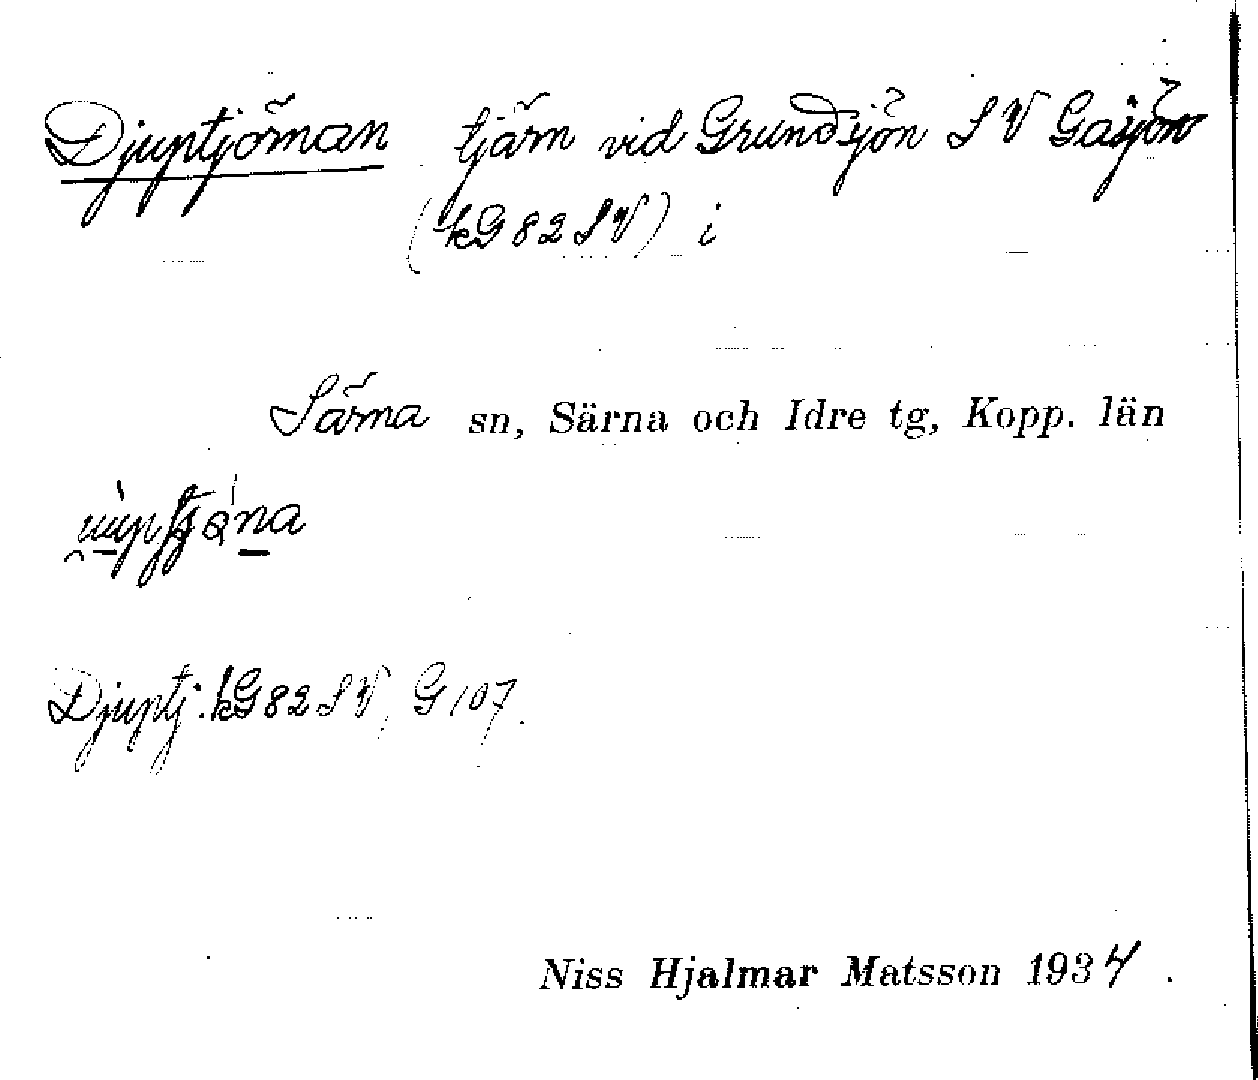 Djuptjörnan tjärn vid Grundsjön SV Gasjön
(kG82SV) i
Särna sn, Särna och Idre tg, Kopp. län
Djuptj. kG82SV, G107.
Niss Hjalmar Matsson 1934.